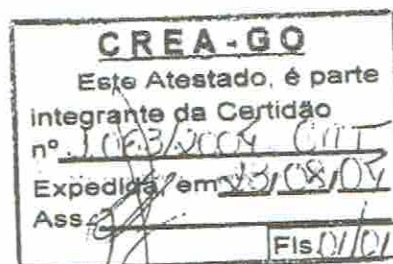 CREA-GO
Este Atestado, é parte
integrante da Certidão
nº
Expedida, em 23/08/04
Ass.
Fls 01/01